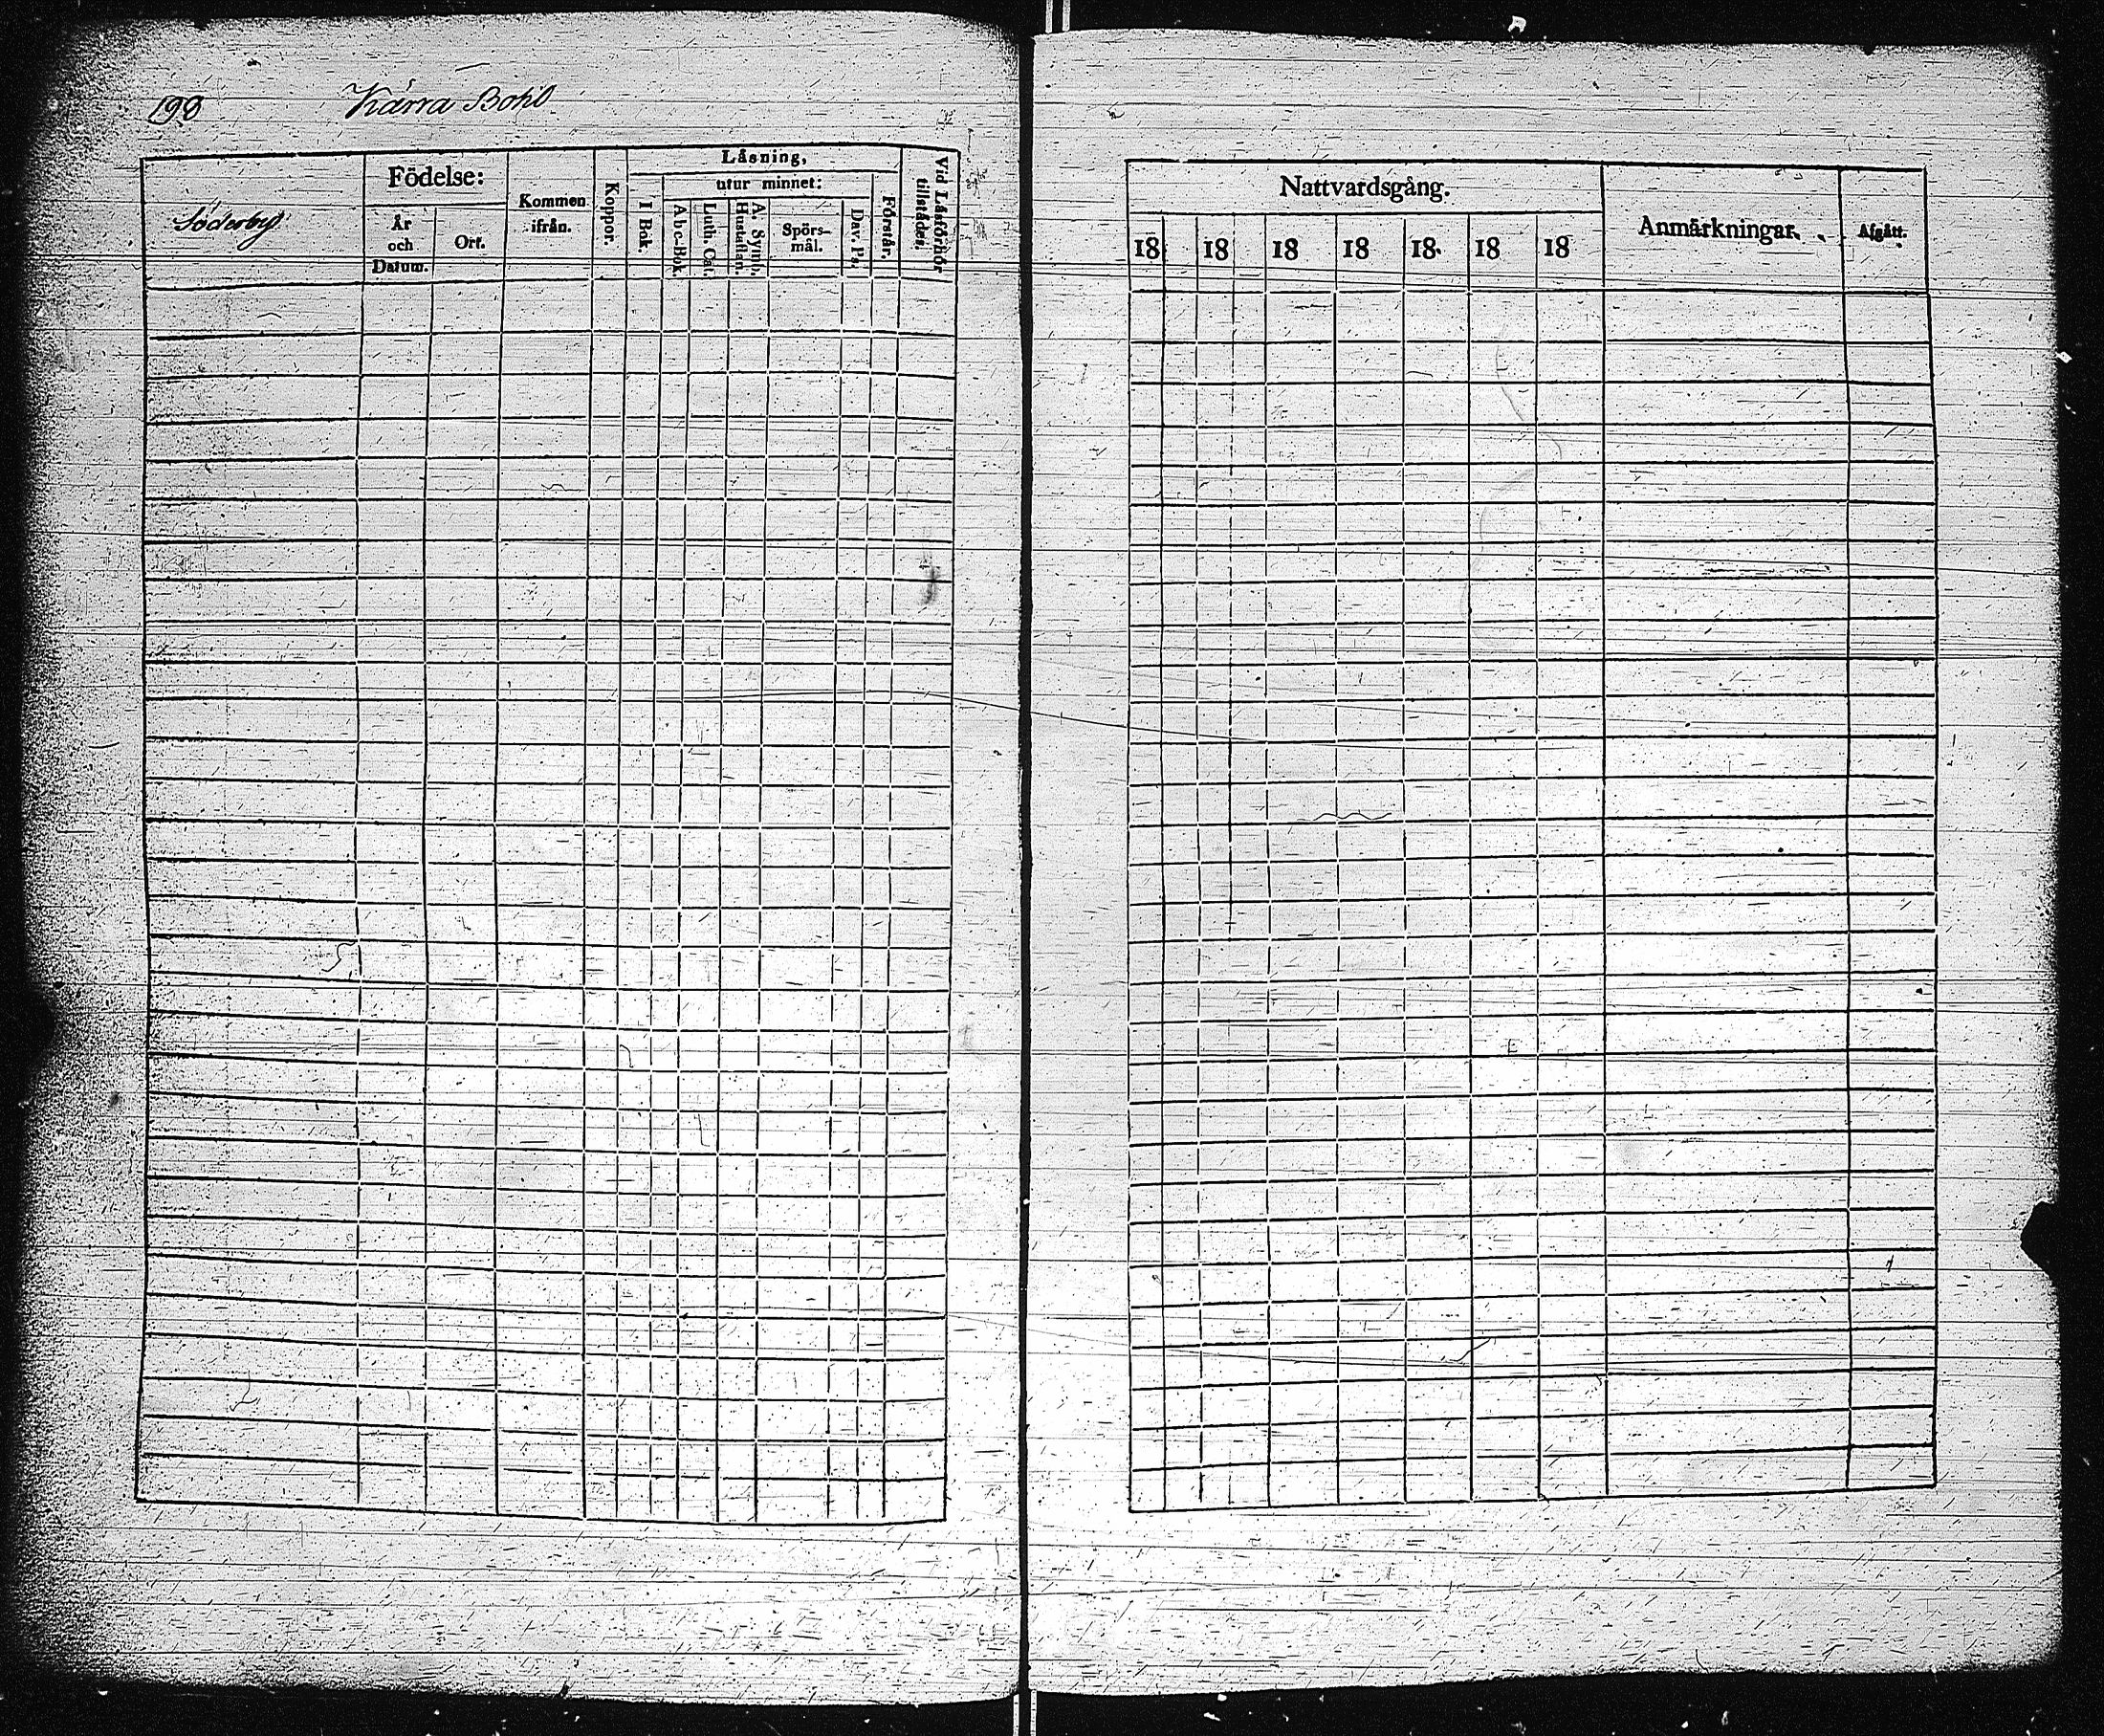 198 Kårra Bohl
Söderby
Födelse:
År och Datum.
Ort.
Kommen ifrån.
Koppor.
Låsning,
I Bok.
utur minnet:
Abc-Bok.
Luth. Cat.
A. Symb. Hustaflan.
Spörs-mål.
Dav. Ps.
Förstår.
Vid Låsförhör tillstådes.
Nattvardsgång.
18 18 18 18 18. 18 18
Anmärkningar.
Afgått.